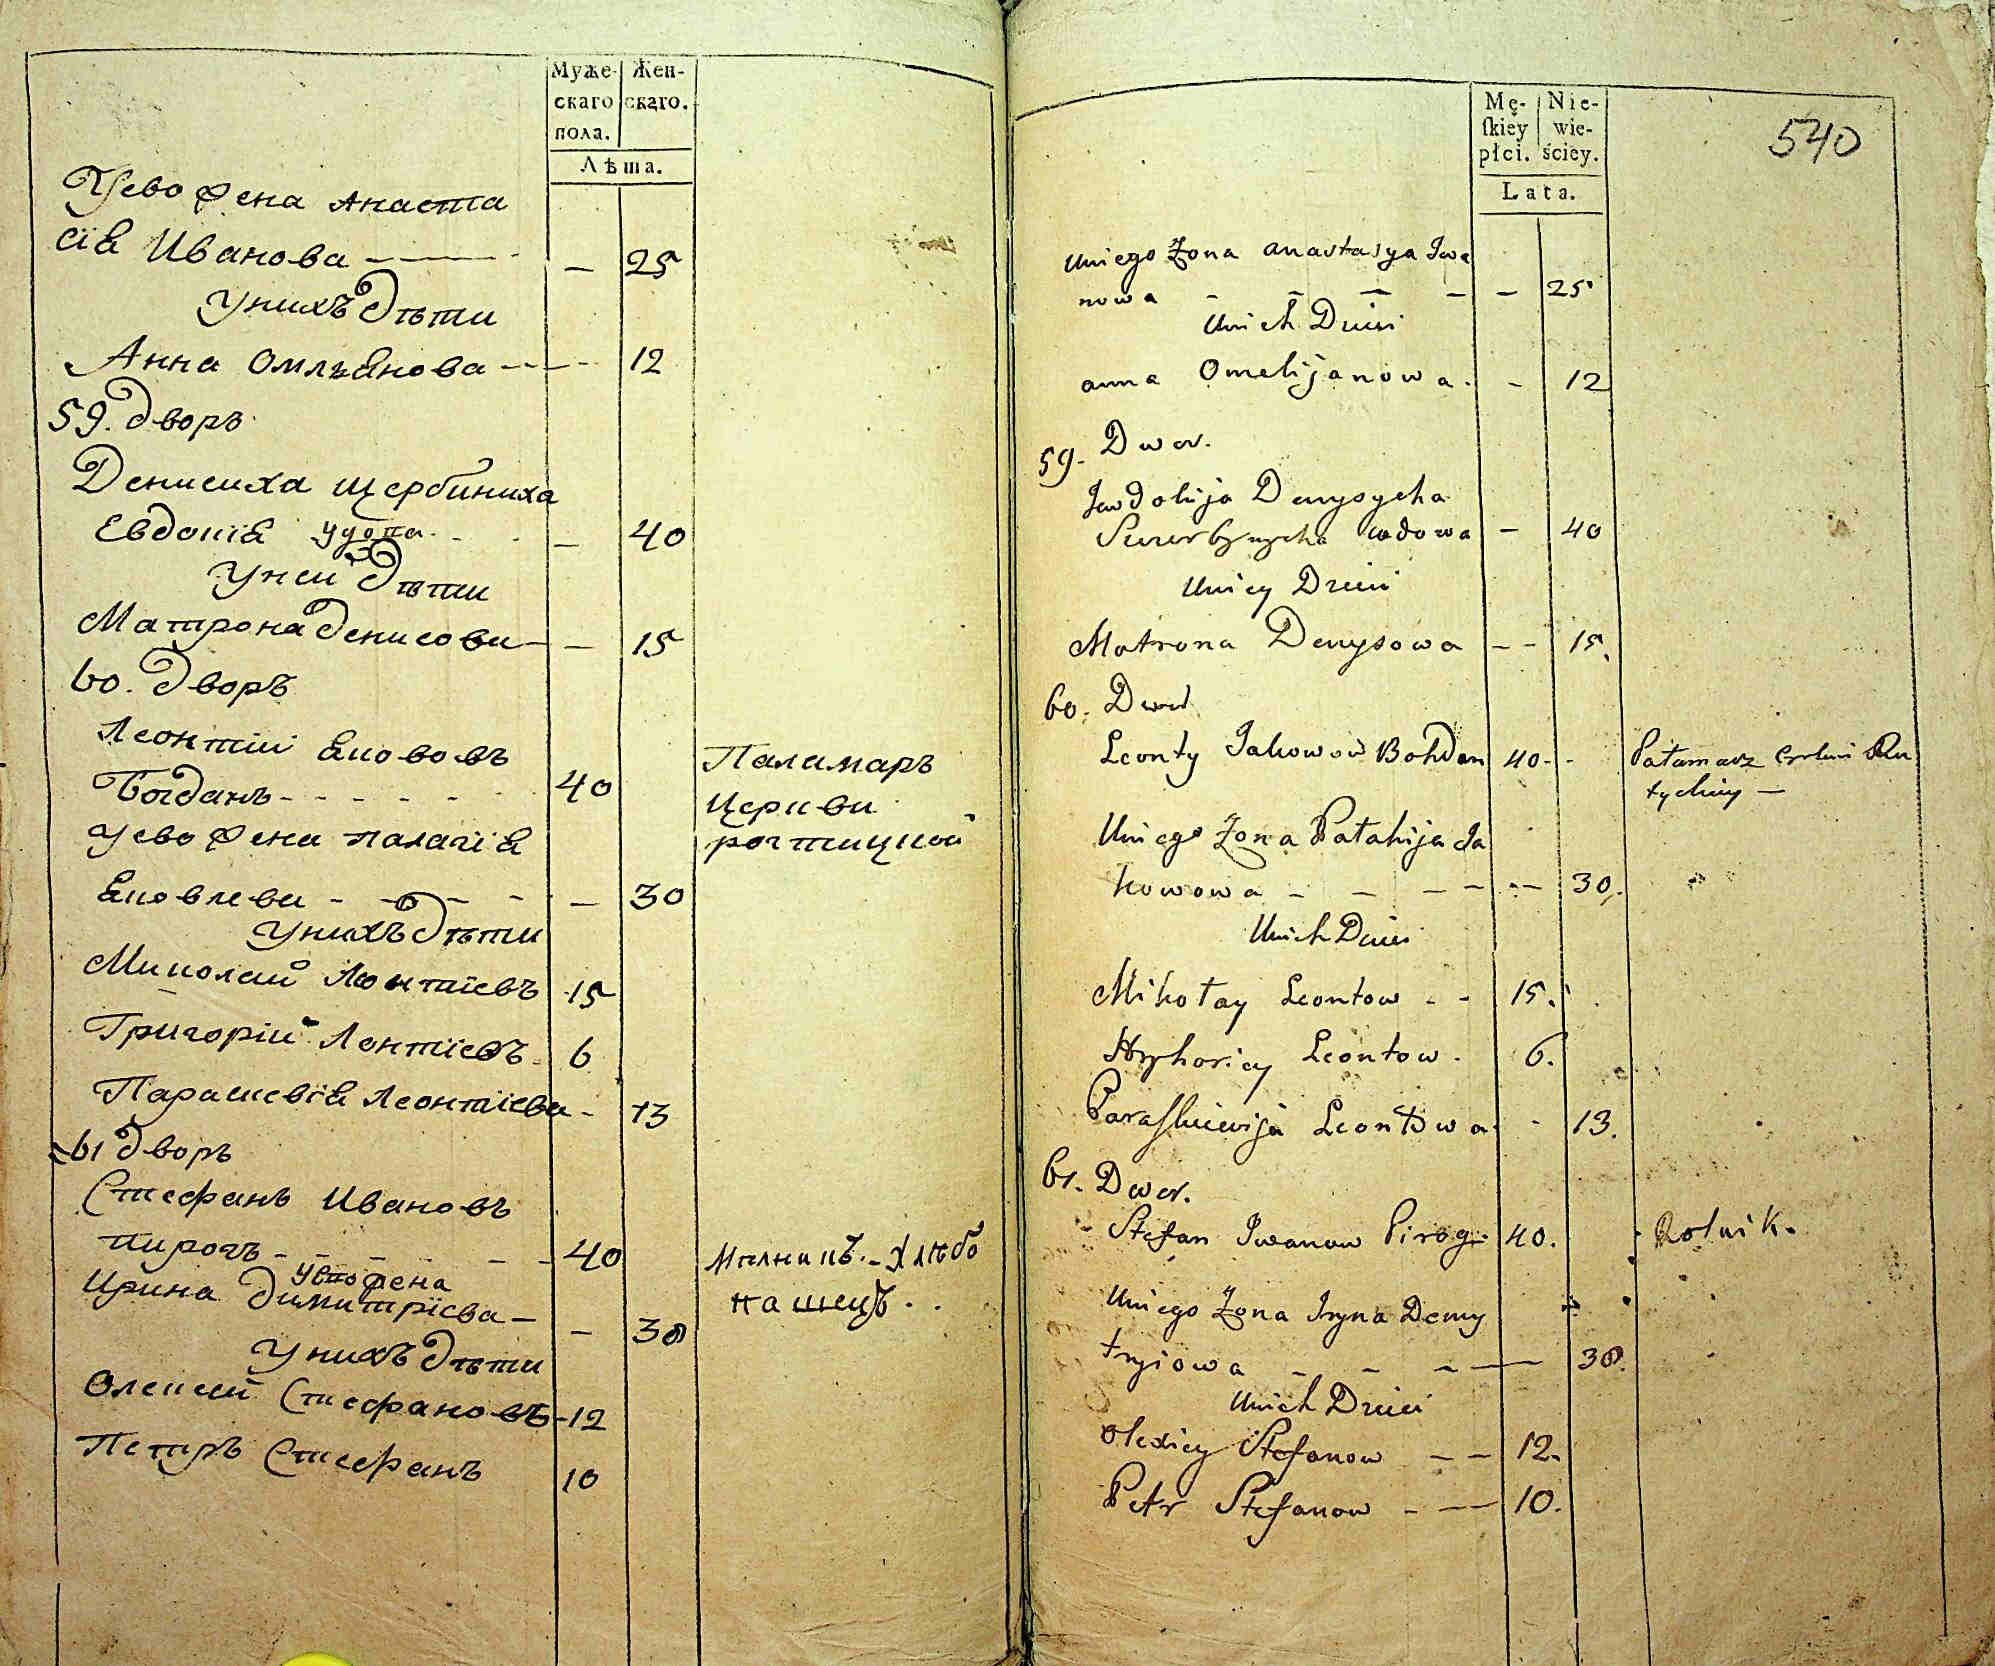 Муже-
скаго
пола.
Жен-
скаго.
Лѣта.
Уево жена Анаста
сїя Иванова
25
Унихъ дѣти
Анна Омляянова
12
59. дворъ
Денисиха Щербиниха
Евдокїя удова
40
Уней дѣти
Матрона Денисова
15
60. дворъ
Леонтий Якововъ
Богданъ
40
Паламаръ
Церкви
уево жена палагїя
Яковлева
30
Унихъ дѣти
Миколай Леонтїевъ
15
Григорій Леонтїевъ
6
Параскевїя Леонтїева
13
61 дворъ
Стефанъ Ивановъ
пирогъ
40
Хлѣбо
пашецъ.
уво жена
Ирина димитрїева
30
Унихъ дѣти
Олексей Стефановъ
12
Петръ Стефанъ
10
Mę-
ſkiey
płci.
Nie-
wie-
ściey.
Lata.
540
Uniego Żona Anastasya Iwa
nowa
25
Unich Dzieci
anna Omelijanowa
12
59. Dwor.
Jewdokija Denysycha
Szczerbynycha wdowa
40
Uniey Dzieci
Motrona Denysowa
15.
60. Dwor
Leonty Jakowow Bohdan
40
Pałamarz Cerkwi Ru
Uniego Żona Pałahija Ja
kowowa
30.
Unich Dzieci
Mikołay Leontow
15.
Hryhoriey Leontow.
6.
Paraſkiewija Leontowa
13.
61. Dwor.
Stefan Iwanow Pirog
40.
Rolnik.
Uniego Żona Iryna Demy
tryiowa
30.
Unich Dzieci
Olexiey Stefanow
12.
Petr Stefanow
10.